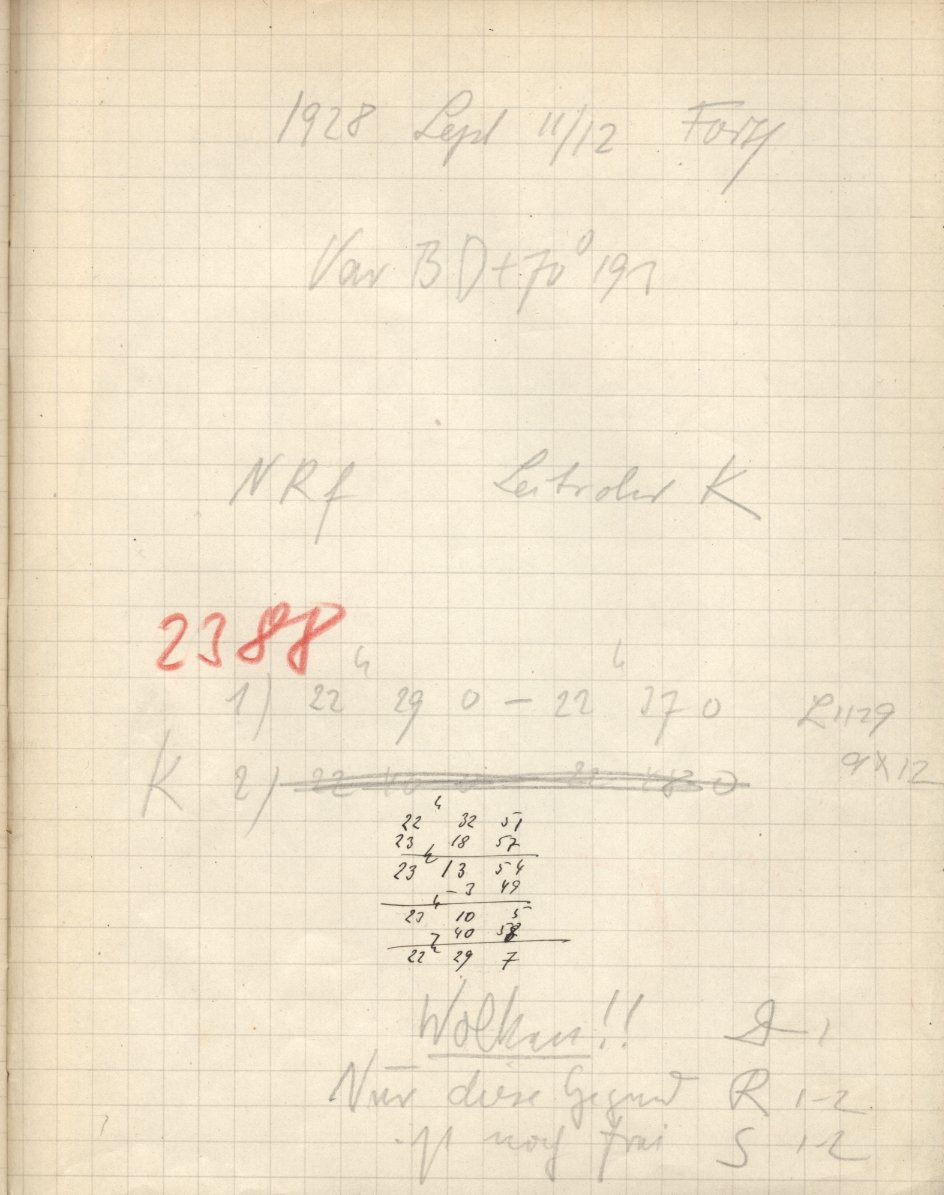 1928 Sept 11/12
Var BD+70° 191
NRf Leitrohr K
2388
1) 22ʰ 29 0 — 22ʰ 37 0 L 1129
9x12
K 2) 22 40 0 — 22 48 0
22ʰ 32 51
23 18 57
23ʰ 13 54
-3 49
23ʰ 10 5
40 58
22ʰ 29 7
Wolken!! D 1
Nur diese Gegend R 1-2
ist noch frei S 1-2